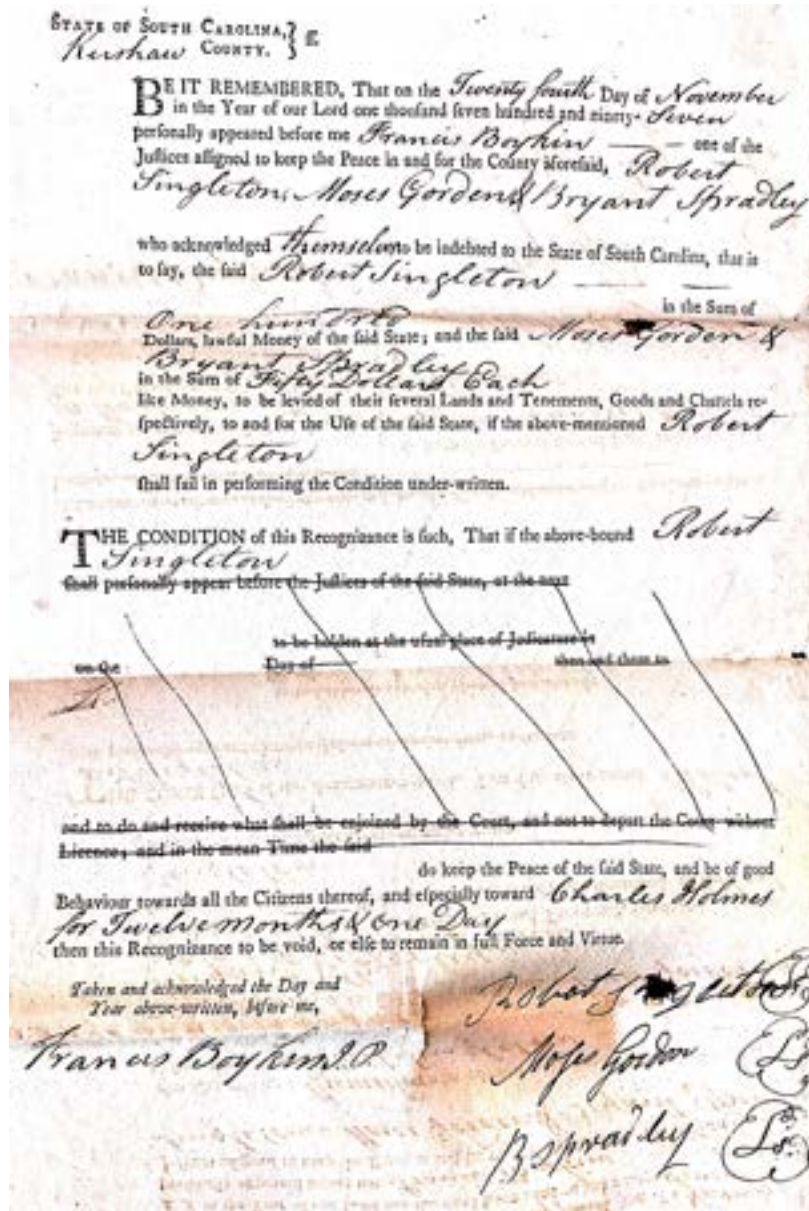 STATE OF SOUTH CAROLINA,
Kershaw COUNTY.
BE IT REMEMBERED, That on the Twenty fourth Day of November
in the Year of our Lord one thouſand ſeven hundred and ninety- Seven
perſonally appeared before me Francis Boykin — — one of the
Juſtices aſſigned to keep the Peace in and for the County aforeſaid, Robert
Singleton, Moses Gorden & Bryant Spradley
who acknowledged themselves to be indebted to the State of South Carolina, that is
to ſay, the ſaid Robert Singleton — —
in the Sum of
One hundred
Dollars, lawful Money of the ſaid State; and the ſaid Moses Gorden &
Bryant Spradley
in the Sum of Fifty Dollars Each
like Money, to be levied of their ſeveral Lands and Tenements, Goods and Chattels re-
ſpectively, to and for the Uſe of the ſaid State, if the above-mentioned Robert
Singleton
ſhall fail in performing the Condition under-written.
THE CONDITION of this Recognizance is ſuch, That if the above-bound Robert
Singleton
ſhall perſonally appear before the Juſtices of the ſaid State, at the next
to be holden at the uſual place of Judicature in
on the Day of then and there to
and to do and receive what ſhall be enjoined by the Court, and not to depart the Court without
Licence; and in the mean Time the ſaid
do keep the Peace of the ſaid State, and be of good
Behaviour towards all the Citizens thereof, and eſpecially toward Charles Holmes
for Twelve months & one Day
then this Recognizance to be void, or elſe to remain in full Force and Virtue.
Taken and acknowledged the Day and
Year above-written, before me,
Robert Singleton
Francis Boykin J.P.
Moſes Gordon Ls
B Spradley Ls